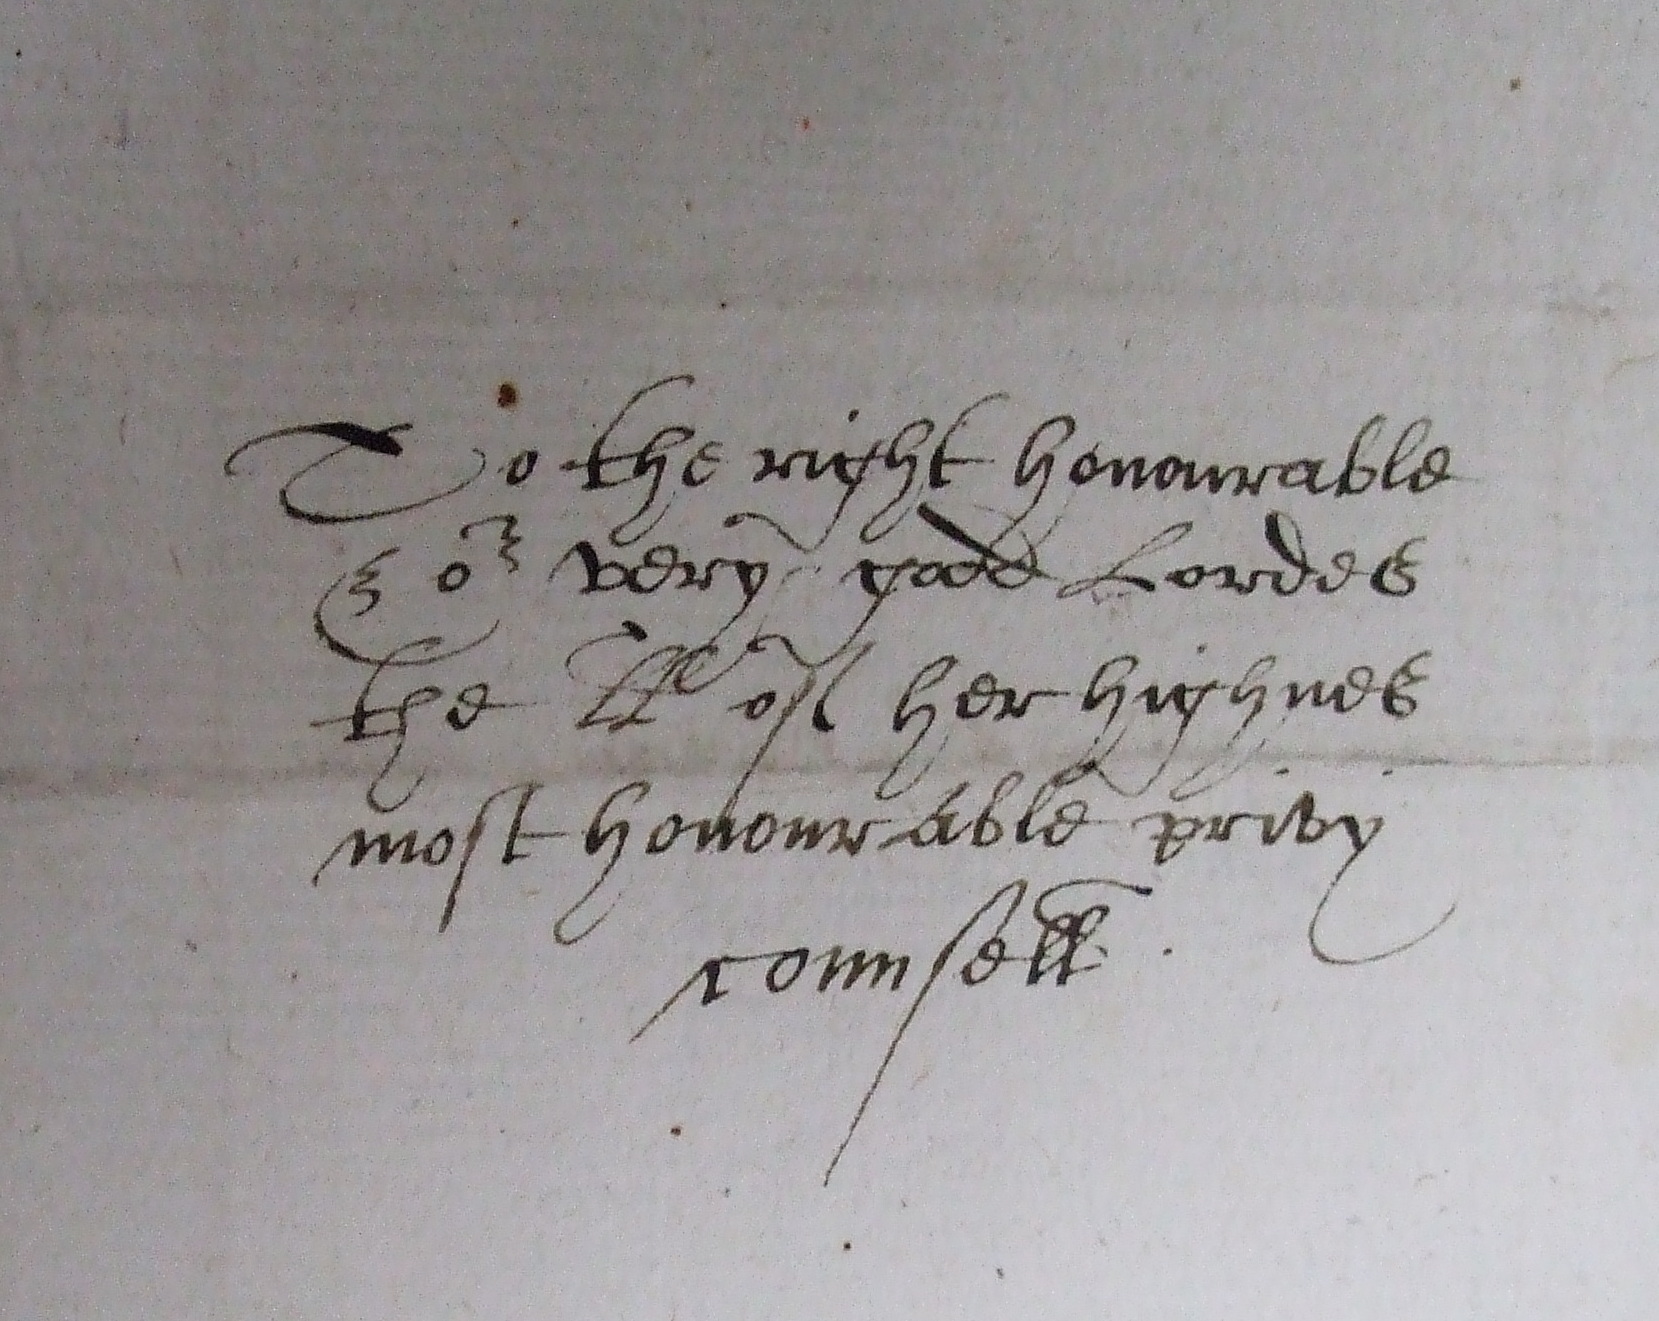 To the right honourable
& or very good Lordes
the LLs of her highnes
most honourable privy
counsell .